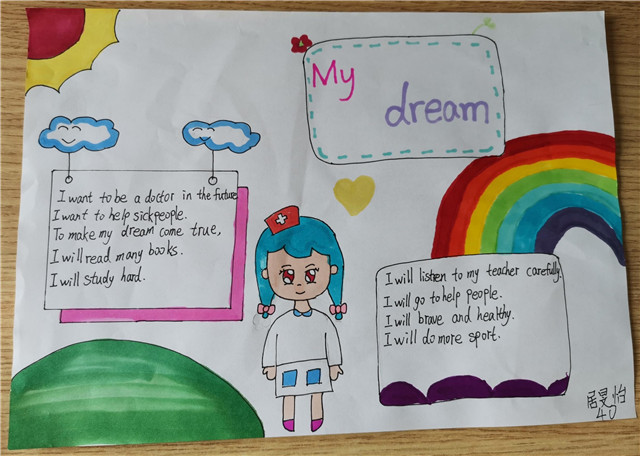 My
dream
I want to be a doctor in the future
I want to help sickpeople.
To make my dream come true,
I will read many books.
I will study hard.
I will listen to my teacher carefully.
I will go to help people.
I will brave and healthy.
I will do more sport.